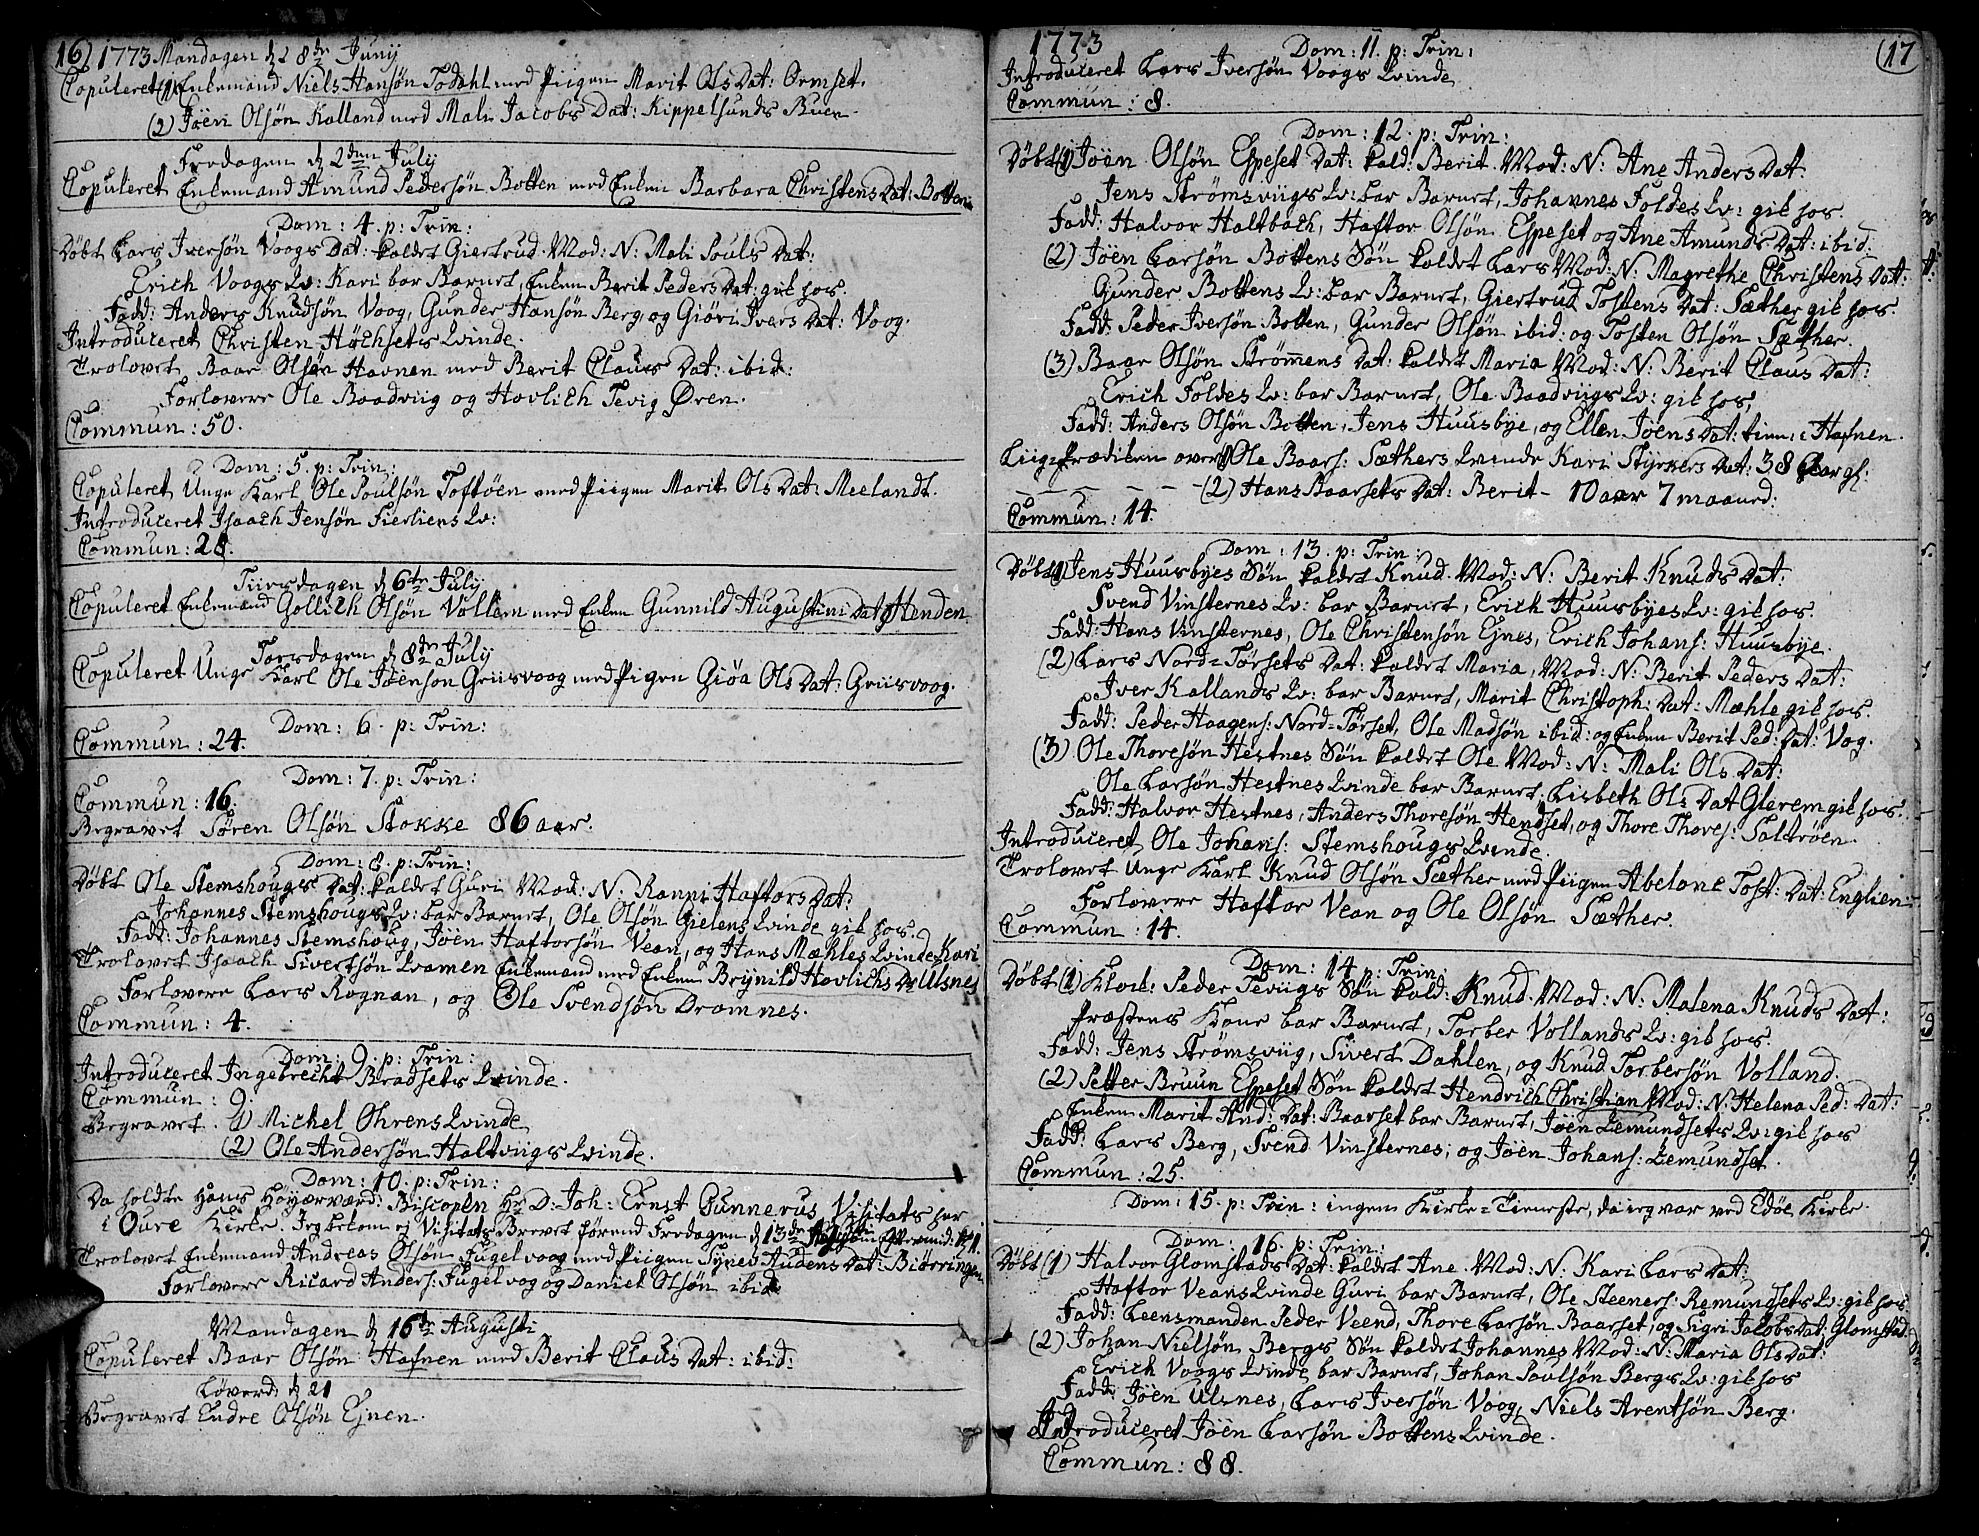 16) 1773 Mandagen d 28de Junij
Copuleret (1) Enkemand Niels Hansøn Todahl med Pigen Marit Ols Dat: Ormset.
(2) Jöen Olsøn Kalland med Mali Jacobs Dat: Kippelsunds Buen.
Fredagen d 2den July
Copuleret Enkemand Amund Pedersøn Botten med Enken Barbara Christens Dat: Botten
Dom: 4. p: Trin:
Döbt Lars Iversøn Voogs Dat: kaldet Giertrud. Mod: N: Mali Pouls Dat:
Erich Voogs Qv: Kari bar Barnet, Enken Berit Peders Dat: gik hos.
Fadd: Anders Knudsøn Voog, Gunder Hansøn Berg, og Giöri Ivers Dat: Voog.
Introduceret Christen Höchsets Qvinde.
Trolovet Baar Olsøn Havnen med Berit Claus Dat: ibid:
Forlovere Ole Baadviig og Hovlich Tevig Øren.
Commun: 50.
Dom: 5. p: Trin:
Copuleret Unge Karl Ole Poulsøn Toftöen med Piigen Marit Ols Dat: Meelandt.
Introduceret Isaach Jensøn Fierliens Qv:
Commun: 28.
Tiirsdagen d 6te July
Copuleret Enkemand Gollich Olsøn Vollem med Enken Gunnild Augustini Dat: Henden
Torsdagen d 8de July
Copuleret Unge Karl Ole Jöensøn Griisvoog med Pigen Giöa Ols Dat: Griisvoog.
Dom: 6. p: Trin:
Commun: 24.
Dom: 7. p: Trin:
Commun: 16.
Begravet Sören Olsøn Stokke 86 aar.
Dom: 8. p: Trin:
Döbt Ole Stemshougs Dat: kaldet Guri Mod: N: Ranni Haftors Dat:
Johannes Stemshougs Qv: bar Barnet, Ole Olsøn Gielens Qvinde gik hos.
Fadd: Johannes Stemshoug, Jöen Haftorsøn Vean, og Hans Mæhles Qvinde Kari
Trolovet Isaach Sivertsøn Qvamen Enkemand med Enken Brynild Hovlichs Dat: Ulsnes
Forlovere Lars Rognan, og Ole Svendsøn Dromnes.
Commun: 4.
Dom: 9. p: Trin:
Introduceret Ingebrecht Bradsets Qvinde.
Commun: 9.
Begravet. (1) Michel Ohrens Qvinde
(2) Ole Andersøn Haltviigs Qvinde.
Dom: 10. p: Trin:
Da holdte Hans Höyærværd: Biscopen Hr D: Joh: Ernst Gunnerus Visitats her
i Oure Kirke. Jeg bekom og Visitats Brevet förend Fredagen d 13de
Trolovet Enkemand Andreas Olsøn Fugelvoog med Piigen Synev Audens Dat: Biörringen
Forlovere Ricard Anders: Fugelvog og Daniel Olsøn ibid.
Mandagen d 16de Augusti
Copuleret Baar Olsøn Hafnen med Berit Claus Dat: ibid:
Löverd: d 21
Begravet Endre Olsøn Ejnen.
1773 (17
Dom: 11. p: Trin:
Introduceret Lars Iversøn Voogs Qvinde
Commun: 8.
Dom: 12. p: Trin:
Döbt (1) Jöen Olsøn Espeset Dat: kald: Berit. Mod: N: Ane Anders Dat:
Jens Strömsviigs Qv: bar Barnet, Johannes Foldes Qv: gik hos.
Fadd: Halvor Haltbach, Haftor Olsøn Espeset og Ane Amunds Dat: ibid.
(2) Jöen Larsøn Bottens Søn kaldet Lars Mod: N: Magrethe Christens Dat:
Gunder Bottens Qv: bar Barnet, Giertrud Tostens Dat: Sæther gik hos.
Fadd: Peder Iversøn Botten, Gunder Olsøn ibid: og Tosten Olsøn Sæther.
(3) Baar Olsøn Strömens Dat: kaldet Maria Mod: N: Berit Claus Dat:
Erich Foldes Qv: bar Barnet, Ole Baadviigs Qv: gik hos,
Fadd: Anders Olsøn Botten, Jens Huusbye, og Ellen Jöens Dat: tien: i Hafnen.
Liig-Prædiken over (1) Ole Baars: Sæthers Qvinde Kari Styrkers Dat: 38 Aar gl:
(2) Hans Baarsets Dat: Berit - 10 aar 7 maaned:
Commun: 14.
Dom: 13. p: Trin:
Döbt (1) Jens Huusbyes Søn kaldet Knud. Mod: N: Berit Knuds Dat:
Svend Vinsternes Qv: bar Barnet, Erich Huusbyes Qv: gik hos
Fadd: Hans Vinsternes, Ole Christensøn Ejnes, Erich Johans: Huusbye.
(2) Lars Nord-Törsets Dat: kaldet Maria, Mod: N: Berit Peders Dat:
Iver Kallands Qv: bar Barnet, Marit Christoph: Dat: Mæhle gik hos.
Fadd: Peder Haagens: Nord-Törset, Ole Madsøn ibid: og Enken Berit Ped: Dat: Vog.
(3) Ole Thoresøn Hestnes Søn kaldet Ole Mod: N: Mali Ols Dat:
Ole Larsøn Hestnes Qvinde bar Barnet, Lisbeth Ols Dat Glerem gik hos.
Fadd: Halvor Hestnes, Anders Thoresøn Hendset, og Thore Thores: Saltröen.
Introduceret Ole Johans: Stemshougs Qvinde.
Trolovet Unge Karl Knud Olsøn Sæther med Piigen Abelone Tost: Dat: Englien
Forlovere Haftor Vean og Ole Olsøn Sæther.
Commun: 14.
Dom: 14. p: Trin:
Döbt (1) Klock: Peder Teviigs Søn kald: Knud. Mod: N: Malena Knuds Dat:
Præstens Kone bar Barnet, Torber Vollands Qv: gik hos.
Fadd: Jens Strömsviig, Sivert Dahlen, og Knud Torbersøn Volland.
(2) Petter Bruun Espeset Søn kaldet Hendrich Christian Mod: N: Helena Ped: Dat:
Enken Marit And: Dat: Baarset bar Barnet, Jöen Lemundsets Qv: gik hos
Fadd: Lars Berg, Svend Vinsternes, og Jöen Johans: Lemundset.
Commun: 25.
Dom: 15. p: Trin: ingen Kirke-Tieneste, da ieg var ved Edöe Kirke.
Dom: 16. p: Trin:
Döbt (1) Halvor Glomstads Dat: kaldet Ane. Mod: N: Kari Lars Dat:
Haftor Veans Qvinde Guri bar Barnet, Ole Steeners: Remundsets Qv: gik hos.
Fadd: Leensmanden Peder Veend, Thore Larsøn Baarset, og Sigri Jacobs Dat: Glomstad.
(2) Johan Nielsøn Bergs Søn kaldet Johannes Mod: N: Maria Ols Dat:
Erich Voogs Qvinde bar Barnet, Johan Poulsøn Bergs Qv: gik hos
Fadd: Jöen Ulsnes, Lars Iversøn Voog, Niels Arentsøn Berg.
Introduceret Jöen Larsøn Bottens Qvinde.
Commun: 88.